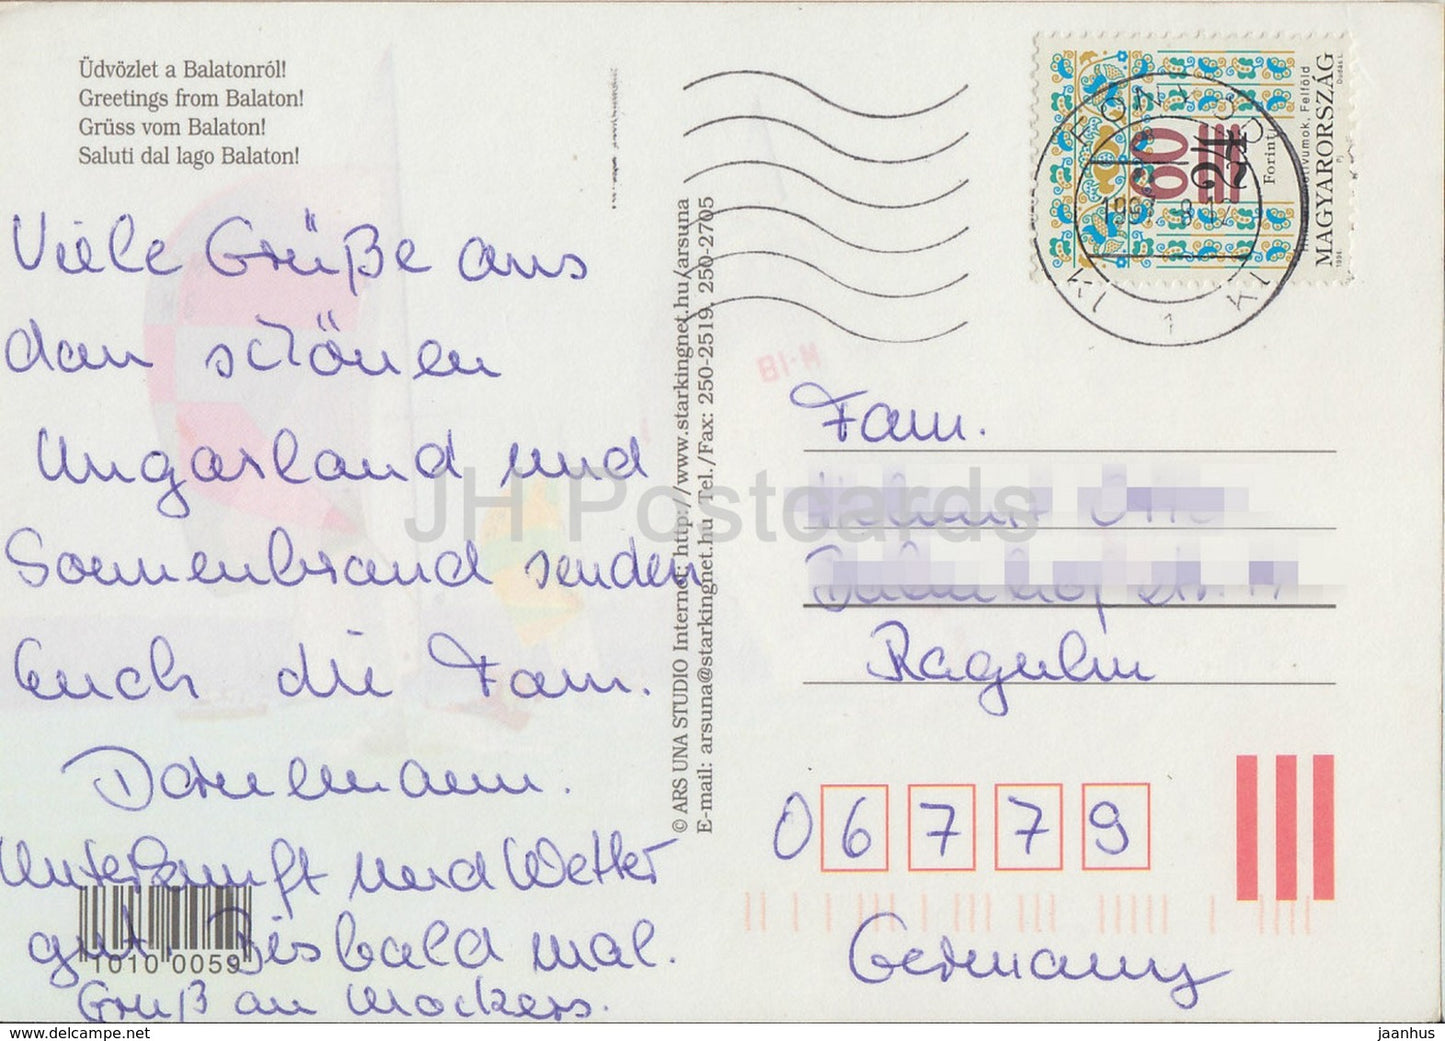 Üdvözlet a Balatonról!
Greetings from Balaton!
Grüss vom Balaton!
Saluti dal lago Balaton!
Viele Grüße aus
dem schönen
Ungarland und
Sonnenbrand senden
Euch die Fam.
Dornemann.
Unterkunft und Wetter
gut. Bis bald mal.
Gruß an Mockers.
1010 0059
© ARS UNA STUDIO Internet: http://www.starkingnet.hu/arsuna
E-mail: arsuna@starkingnet.hu Tel./Fax: 250-2519, 250-2705
60
Forint
Felföld
MAGYARORSZÁG
1
Fam.
Raguhn
06779
Germany
JH Postcards
www.delcampe.net
jaanhus